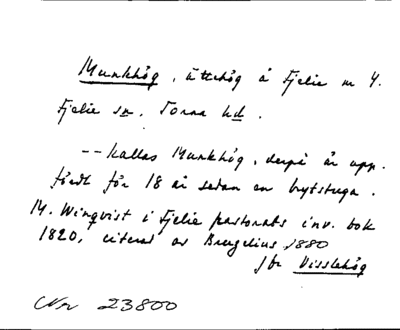 Munkhög, ättehög å Fjelie nr 4.
Fjelie sn, Torna hd.
-- kallas Munkhög, derpå är upp-
fördt för 18 år sedan en brytstuga.
M. Winqvist i Fjelie pastorats inv. bok
1820, citerad av Bruzelius, 1880
jfr Visslehög
Nr 23800